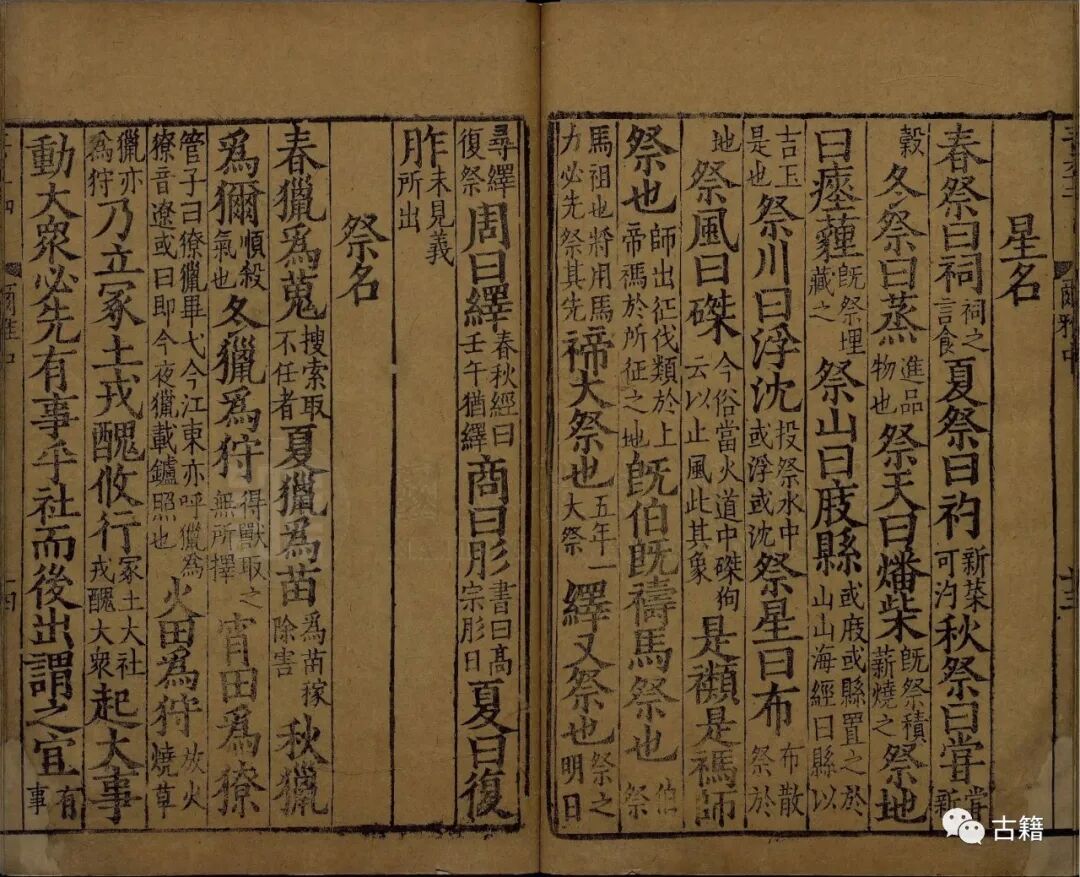 星名
春祭曰祠祠之言食夏祭曰礿新菜可汋秋祭曰嘗嘗新
穀冬祭曰蒸進品物也祭天曰燔柴既祭積薪燒之祭地
曰瘞薶既祭埋藏之祭山曰庪縣或庪或縣置之於山山海經曰縣以
吉玉是也祭川曰浮沈投祭水中或浮或沈祭星曰布布散祭於
地祭風曰磔今俗當火道中磔狗云以止風此其象是禷是禡師
祭也師出征伐類於上帝禡於所征之地既伯既禱馬祭也伯祭
馬祖也將用馬力必先祭其先禘大祭也五年一大祭繹又祭也祭之明日
尋繹復祭周曰繹春秋經曰壬午猶繹商曰肜書曰高宗肜日夏曰復
胙未見義所出
祭名
春獵爲蒐搜索取不任者夏獵爲苗爲苗稼除害秋獵
爲獮順殺氣也冬獵爲狩得獸取之無所擇宵田爲獠
管子曰獠獵畢弋今江東亦呼獵爲獠音遼或曰即今夜獵載鑪照也火田爲狩放火燒草
獵亦爲狩乃立冢土戎醜攸行冢土大社戎醜大衆起大事
動大衆必先有事乎社而後出謂之宜有事
爾雅中
古籍